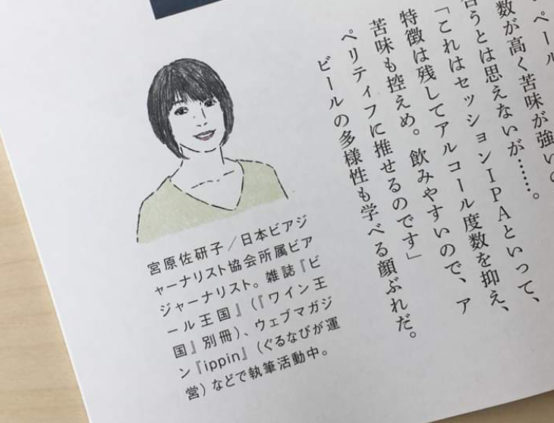 ペール
数が高く苦味が強いの
合うとは思えないが……。
「これはセッションIPAといって、
特徴は残してアルコール度数を抑え、
苦味も控えめ。飲みやすいので、ア
ペリティフに推せるのです」
ビールの多様性も学べる顔ぶれだ。
宮原佐研子／日本ビアジ
ャーナリスト協会所属ビア
ジャーナリスト。雑誌『ビ
ール王国』(『ワイン王
国』別冊)、ウェブマガジ
ン『ippin』(ぐるなびが運
営)などで執筆活動中。